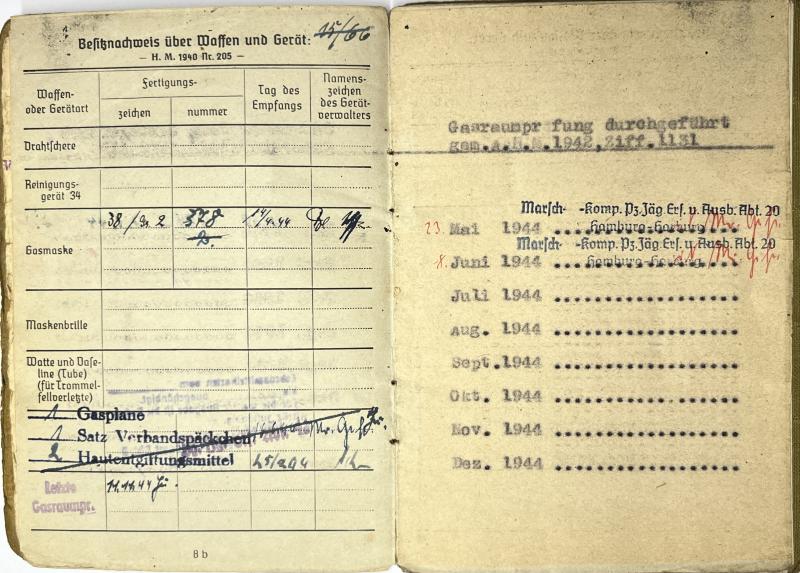 Besitznachweis über Waffen und Gerät: 15/66
— H. M. 1940 Nr. 205 —
Waffen-
oder Gerätart
Fertigungs-
zeichen
nummer
Tag des
Empfangs
Namens-
zeichen
des Gerät-
verwalters
Drahtschere
Reinigungs-
gerät 34
Gasmaske
378
Maskenbrille
Watte und Vase-
line (Tube)
(für Trommel-
fellverletzte)
1 Gasplane
1 Satz Verbandspäckchen
2 Hautentgiftungsmittel
Letzte
Gasraumpr.
11.11.44
8 b
Gasraumpr fung durchgeführt
gem.A.H.M.1942,Ziff.1131
Marsch- -Komp. Pz. Jäg. Ers. u. Ausb. Abt. 20
23. Mai 1944
Hamburg-Harburg
Marsch- -Komp. Pz. Jäg. Ers. u. Ausb. Abt. 20
8. Juni 1944
Hamburg-Harburg
Juli 1944
Aug. 1944
Sept.1944
Okt. 1944
Nov. 1944
Dez. 1944